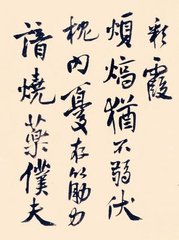 彩霞
煩熇猶不弱伏
枕內憂在筋力
請燒藥僕夫